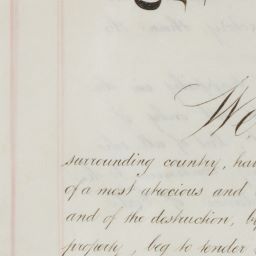 We
surrounding country, hav
of a most atrocious and
and of the destruction, by
property, beg to tender